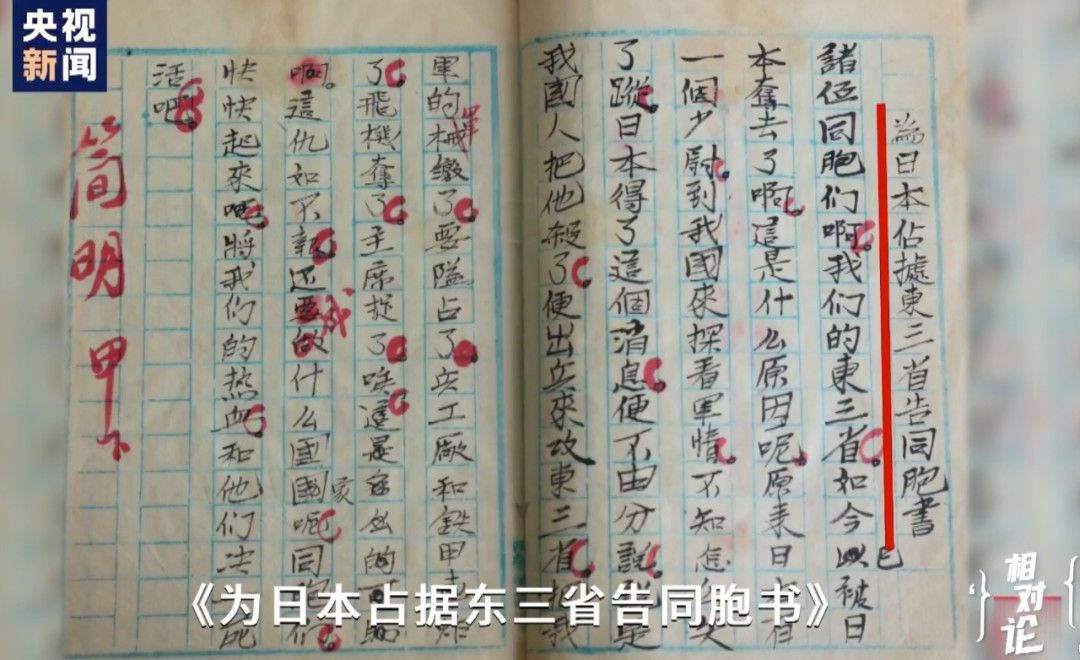 央视
新闻
為日本佔據東三省告同胞書
諸位同胞们啊。我们的東三省。如今已被日
本奪去了啊。這是什么原因呢。原来日
一個少尉。到我國來探看軍情。不知怎
了蹤。日本得了這個消息。便不由分説。是
我國人把他殺了。便出兵來攻東三省。我
軍的械繳了。要隘占了。兵工廠和鉄甲
了。飛機奪了。主席捉了。唉。這是多么的可
啊。這仇如不報。还成什么國家呢。同胞们
快快起來吧。將我们的热血。和他们决死
活吧。
简明 甲下
《为日本占据东三省告同胞书》
相对论